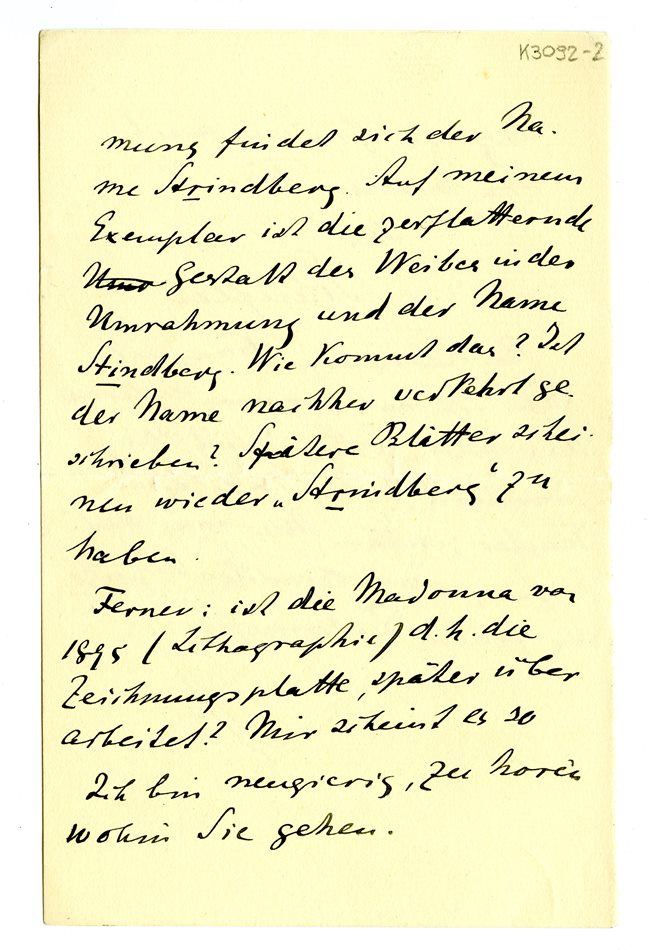 K3092-2
mung findet sich der Na-
me Strindberg. Auf meinem
Exemplar ist die zerflatternde
Umr Gestalt des Weibes in der
Umrahmung und der Name
Stindberg. Wie kommt das? Ist
der Name nachher verkehrt ge-
schrieben? Spätere Blätter schei-
nen wieder „Strindberg“ zu
haben.
Ferner: ist die Madonna von
1895 (Lithographie) d. h. die
Zeichnungsplatte, später über
arbeitet? Mir scheint es so
Ich bin neugierig, zu hören
wohin Sie gehen.